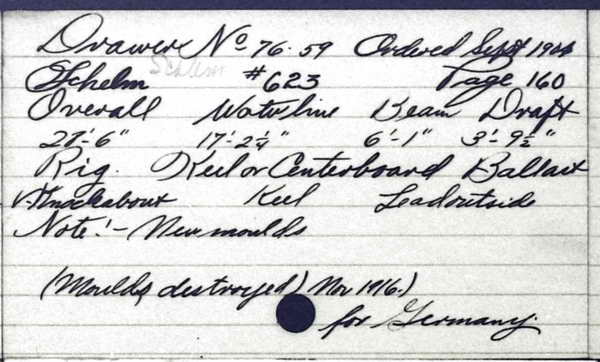 Drawer No 76-59 Ordered Sept 1904
Schelm Schelm #623 Page 160
Overall Waterline Beam Draft
27'-6" 17'-2¼" 6'-1" 3'-9½"
Rig. Keel or Centerboard Ballast
Knockabout Keel Lead outside
Note:- New moulds
(Moulds destroyed) Nov 1916.)
for Germany.